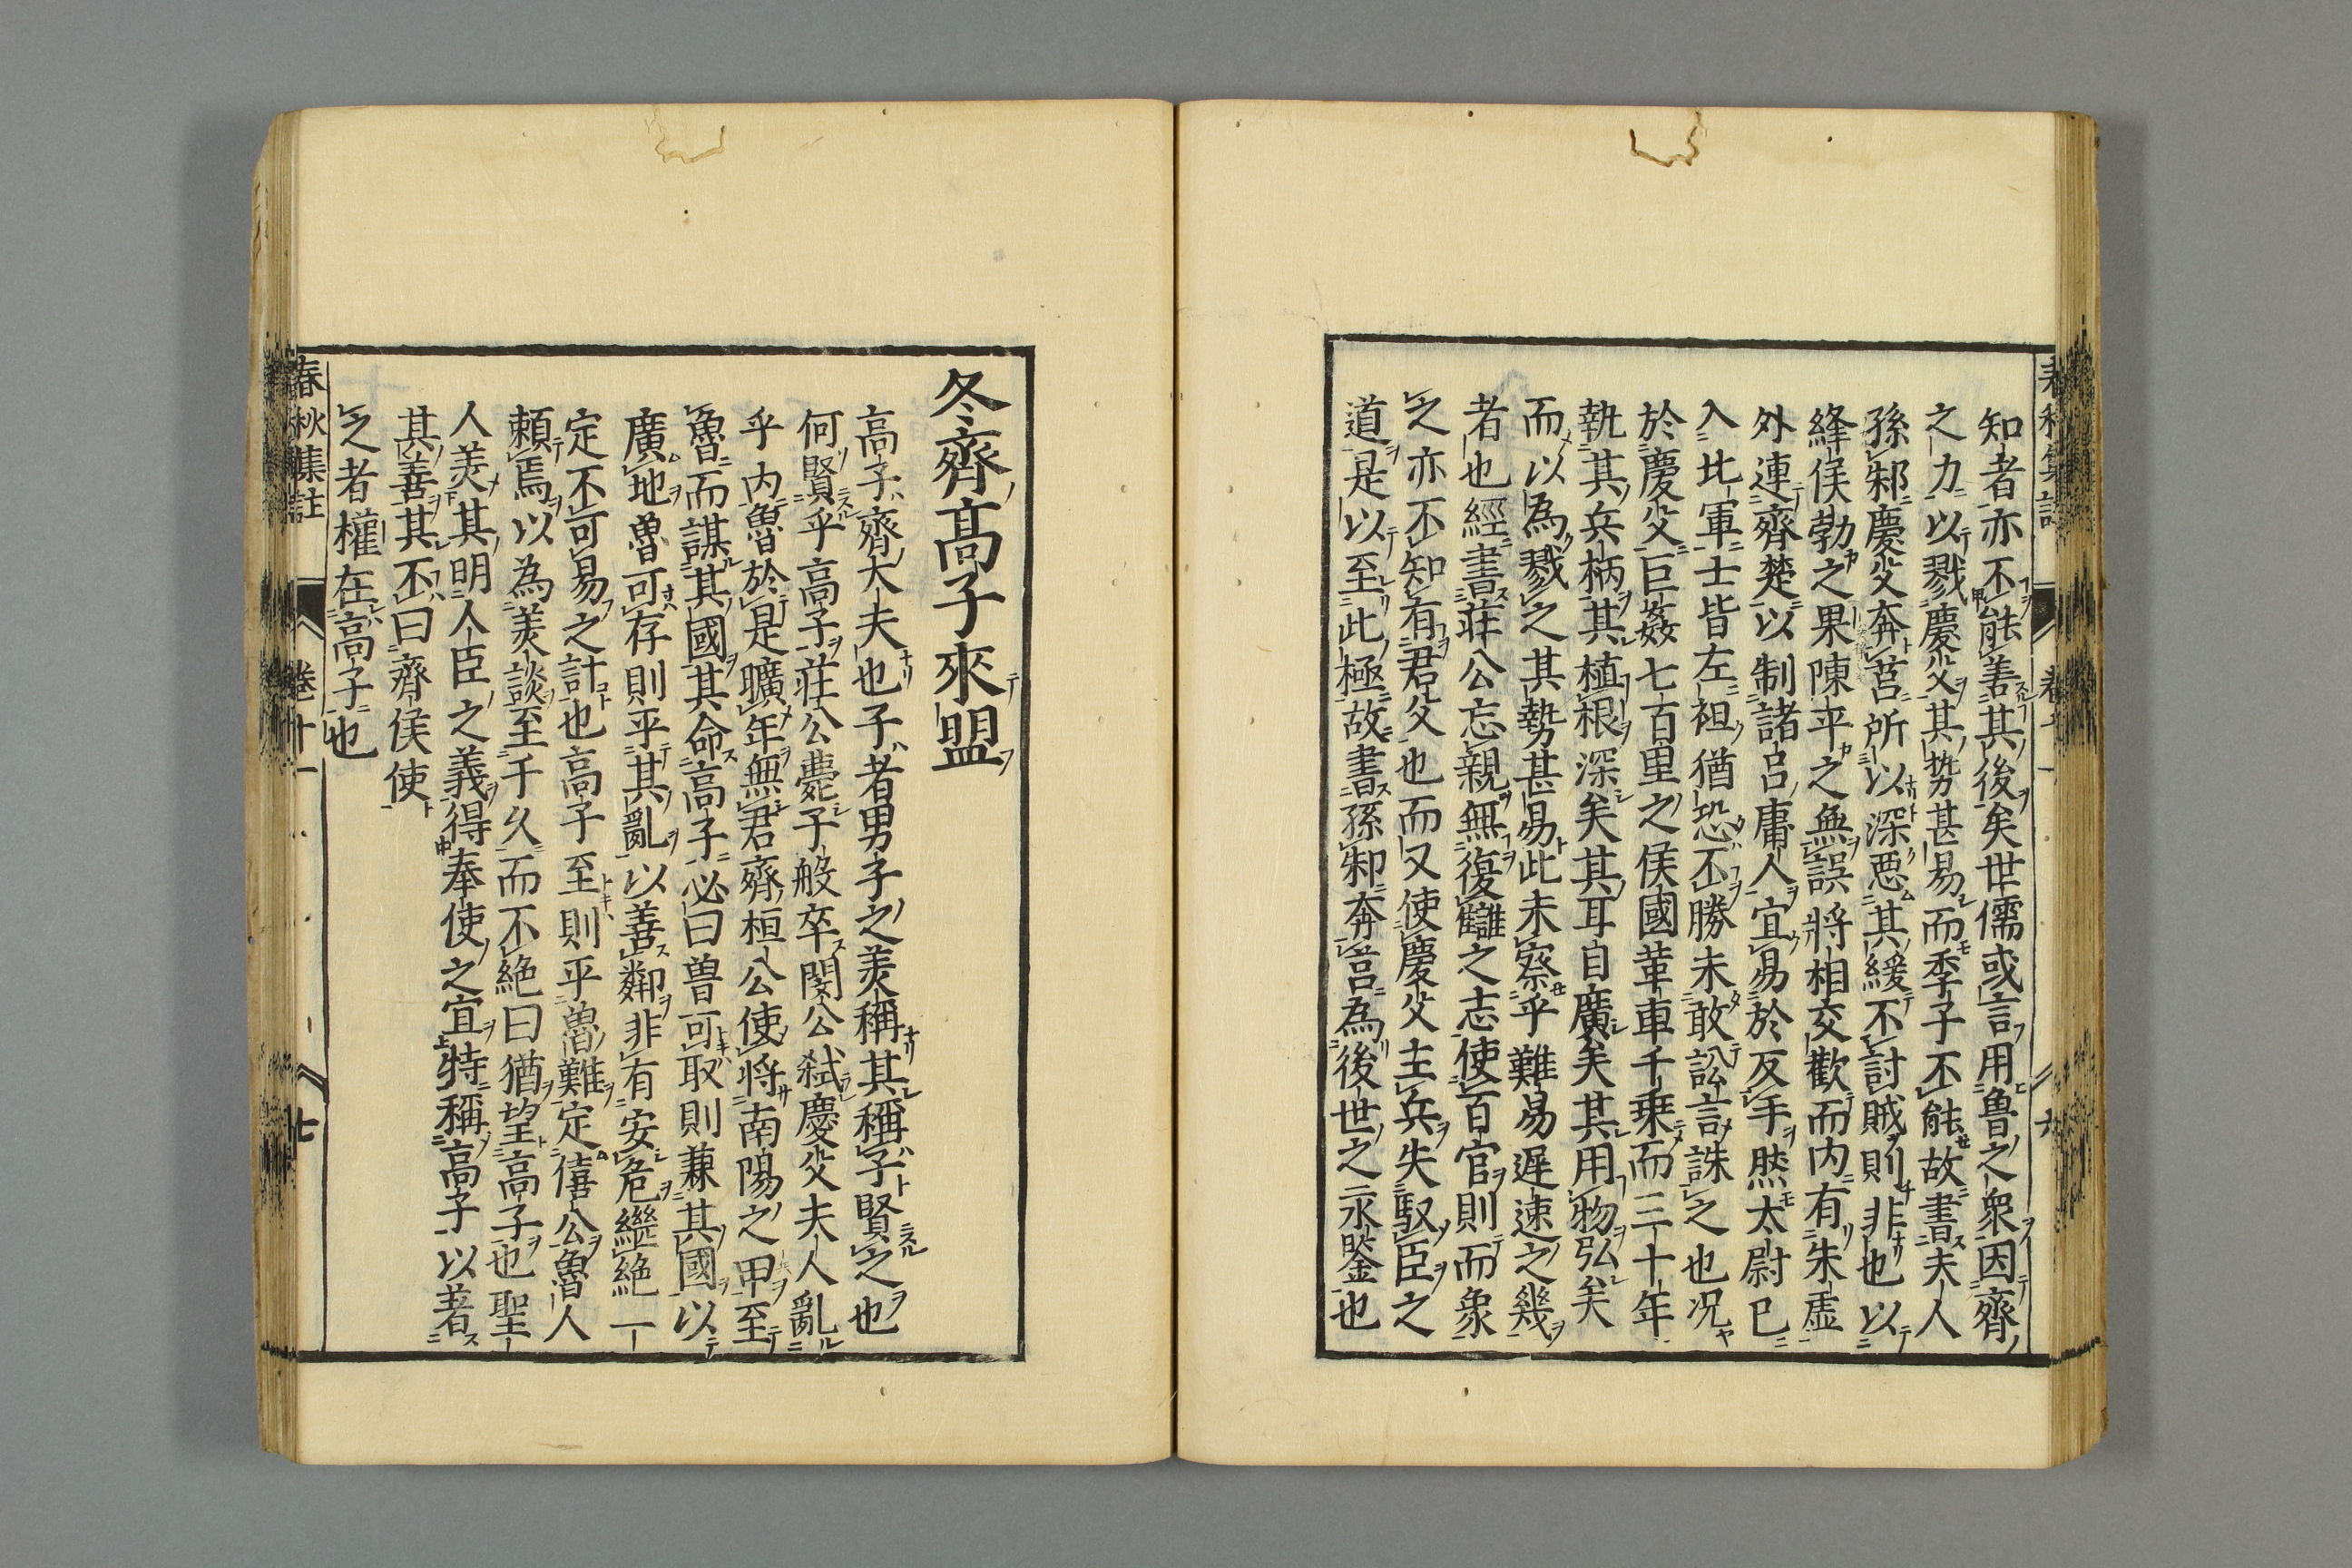 知者亦不能善其後矣世儒或言用魯之衆因齊
之力以戮慶父其勢甚易而季子不能故書夫人
孫邾慶父奔莒所以深惡其緩不討賊則非也以
絳侯勃之果陳平之無誤將相交歡而内有朱虚
外連齊楚以制諸呂庸人宜易於反手然太尉已
入北軍士皆左袒猶恐不勝未敢訟言誅之也况
於慶父巨姦七百里之侯國革車千乗而三十年
執其兵柄其植根深矣其耳自廣矣其用物弘矣
而以為戮之其勢甚易此未察乎難易遲速之幾
者也經書莊公忘親無復讎之志使百官則而象
之亦不知有君父也而又使慶父主兵失馭臣之
道是以至此極故書孫邾奔莒為後世之永鑒也
冬齊高子來盟
高子齊大夫也子者男子之美稱其稱子賢之也
何賢乎高子莊公薨子般卒閔公弑慶父夫人亂
乎内魯於是曠年無君齊桓公使將南陽之甲至
魯而謀其國其命高子必曰魯可取則兼其國以
廣地魯可存則平其亂以善鄰非有安危繼絶一
定不可易之計也高子至則平魯難定僖公魯人
頼焉以為美談至于久而不絶曰猶望高子也聖
人美其明人臣之義得奉使之宜特稱高子以著
其善其不曰齊侯使
之者權在高子也
春秋集註
卷十一
七